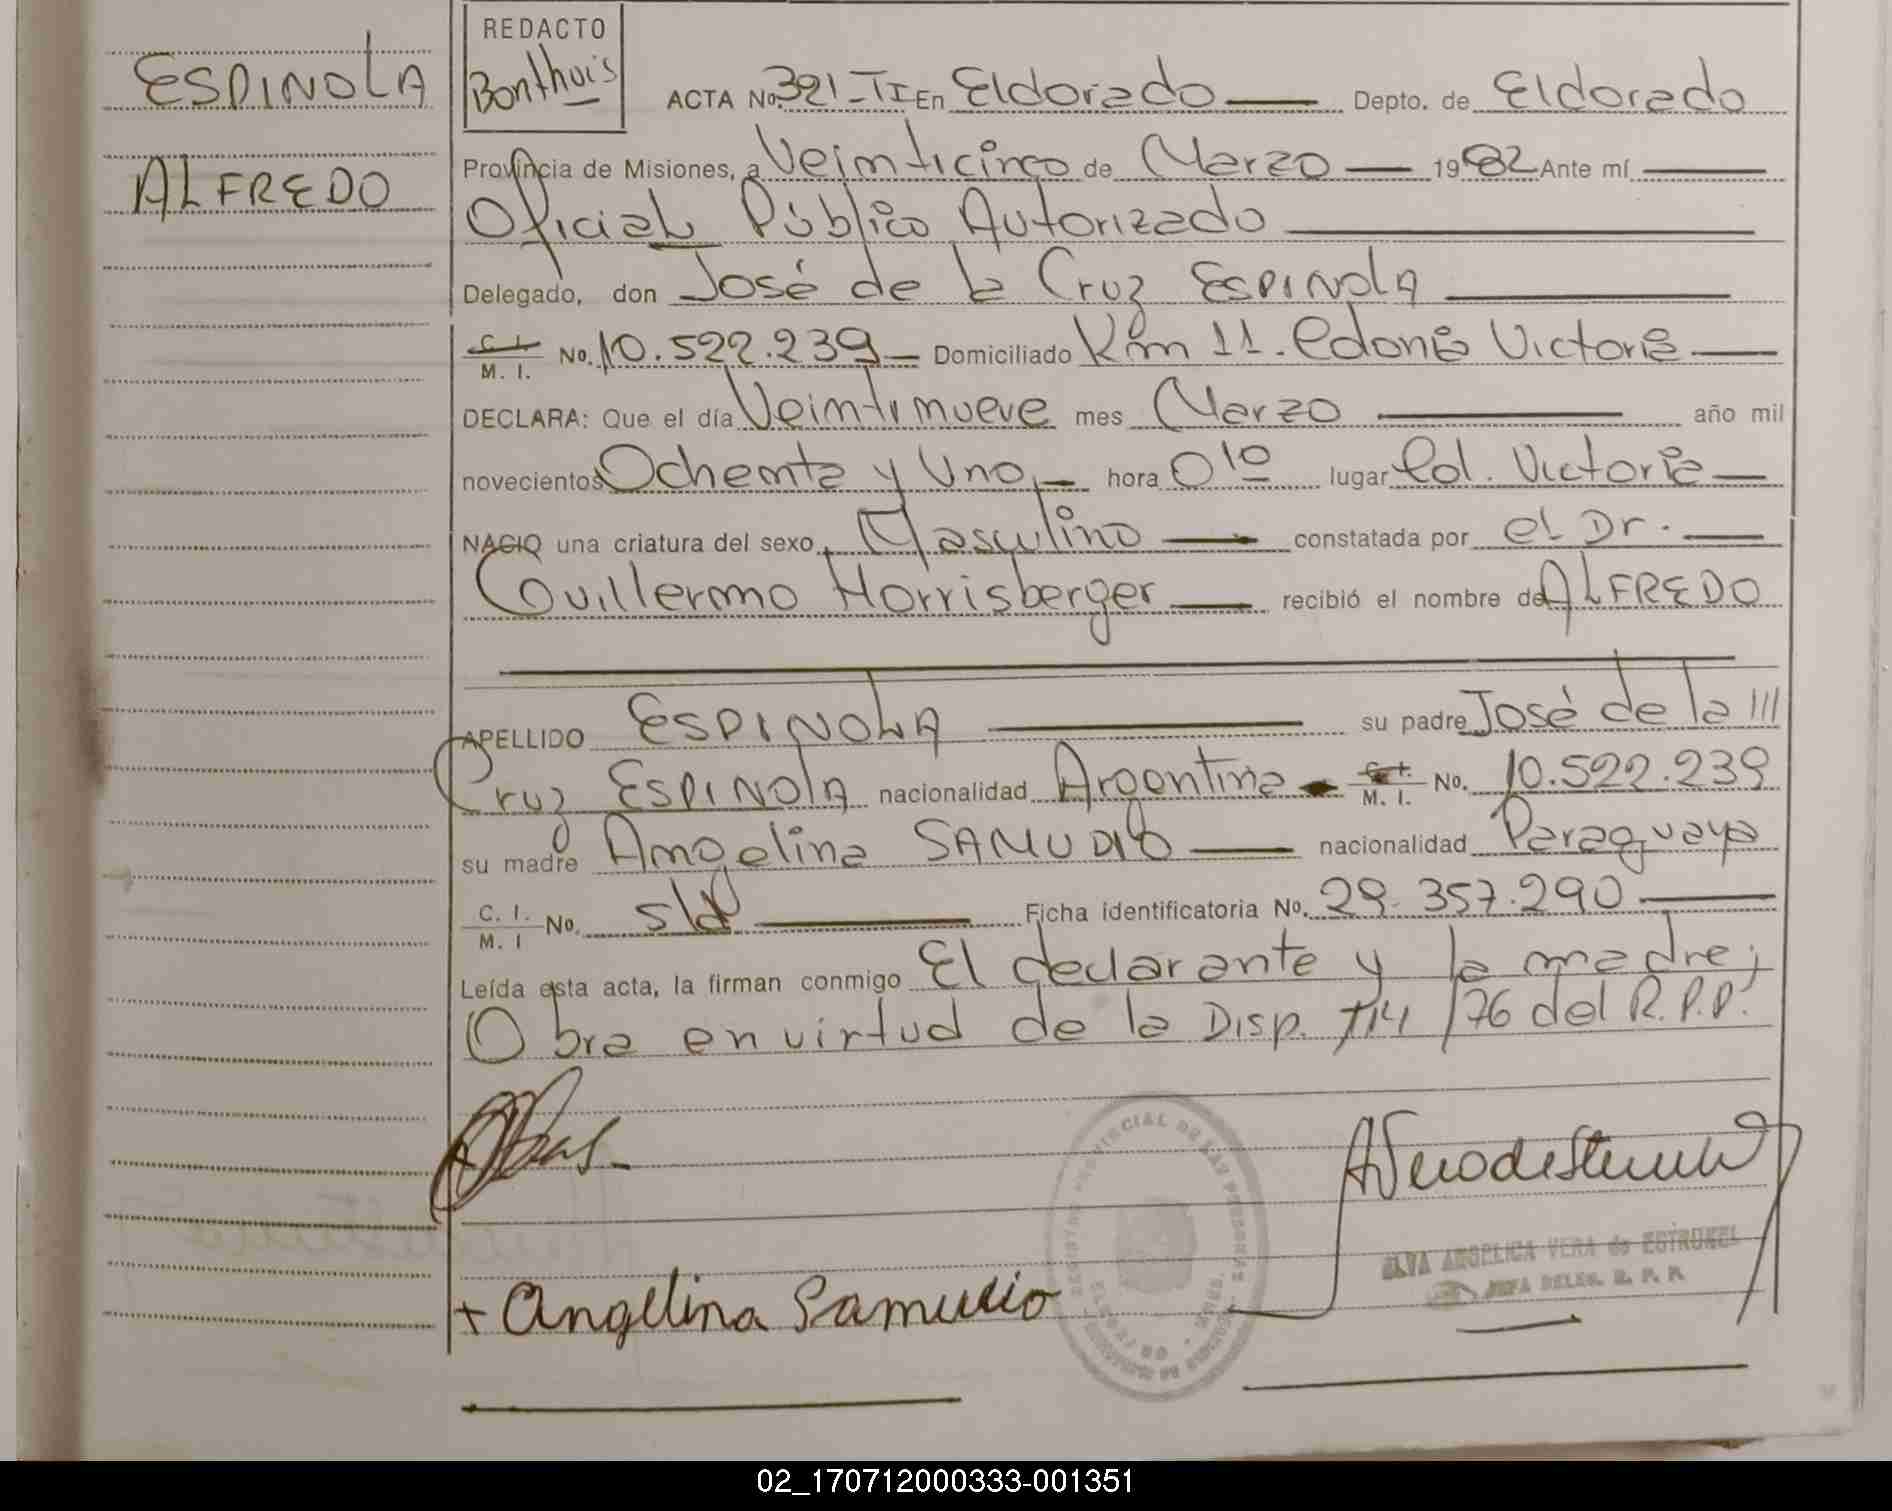 ESPINOLA
ALFREDO
REDACTO
Bonthuis
ACTA No. 321-TI En Eldorado Depto. de Eldorado
Provincia de Misiones, a Veinticinco de Marzo 1982 Ante mí
Oficial Público Autorizado
Delegado, don José de la Cruz ESPINOLA
C. I. M. I. No. 10.522.239 Domiciliado Km 11. Colonia Victoria
DECLARA: Que el día Veintinueve mes Marzo año mil
novecientos Ochenta y Uno hora 0 10 lugar Col. Victoria
NACIO una criatura del sexo Masculino constatada por el Dr.
Guillermo Horrisberger recibió el nombre de ALFREDO
APELLIDO ESPINOLA su padre José de la
Cruz ESPINOLA nacionalidad Argentina C. I. M. I. No. 10.522.239
su madre Angelina SAMUDIO nacionalidad Paraguaya
C. I. M. I No. s/d Ficha identificatoria No. 29.357.290
Leída esta acta, la firman conmigo El declarante y la madre;
Obra en virtud de la Disp. /76 del R.P.P.
+ Angelina Samudio
ANGELICA VERA de
JEFA DELEG. R. P. P.
02_170712000333-001351